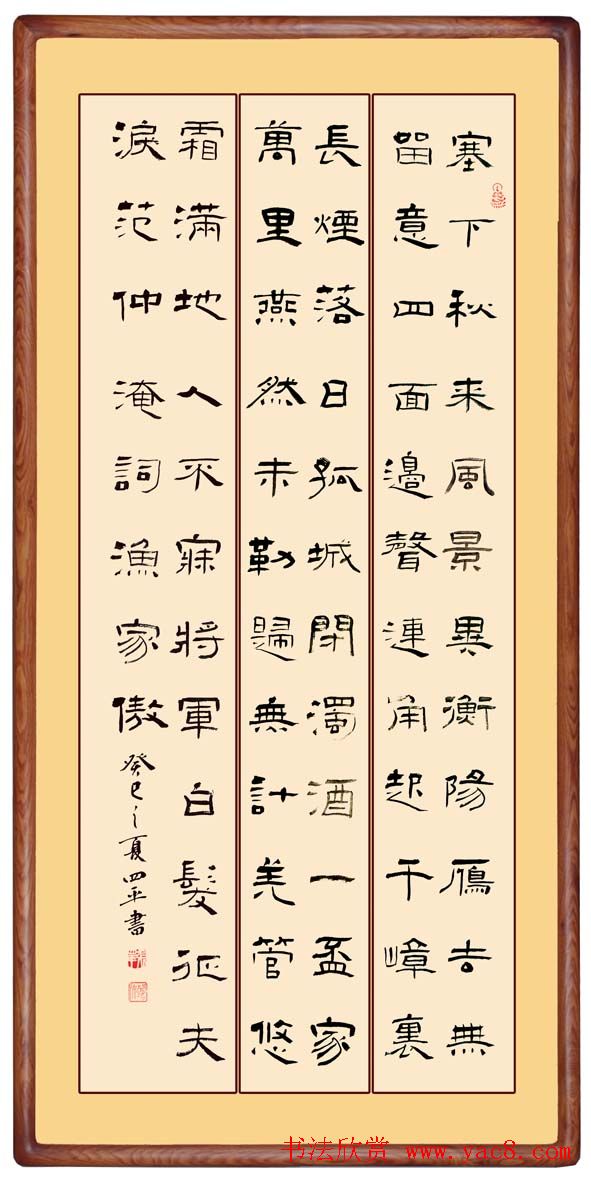 塞下秋来風景異衡陽雁去無
留意四面邊聲連角起千嶂裏
長煙落日孤城閉濁酒一盃家
萬里燕然未勒歸無計羌管悠
霜滿地人不寐將軍白髮征夫
淚范仲淹詞漁家傲
癸巳之夏四平書
书法欣赏 www.yac8.com